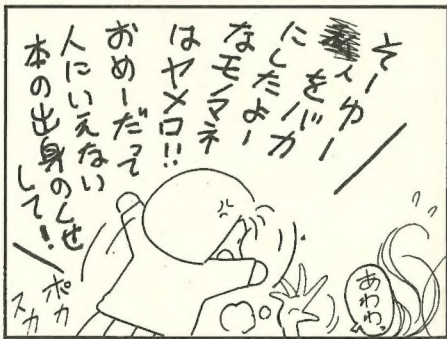 そーゆー
人をバカ
にしたよー
なモノマネ
はヤメロ!!
おめーだって
人にいえない
本の出身のくせ
して!
ポカ
スカ
あわわっ